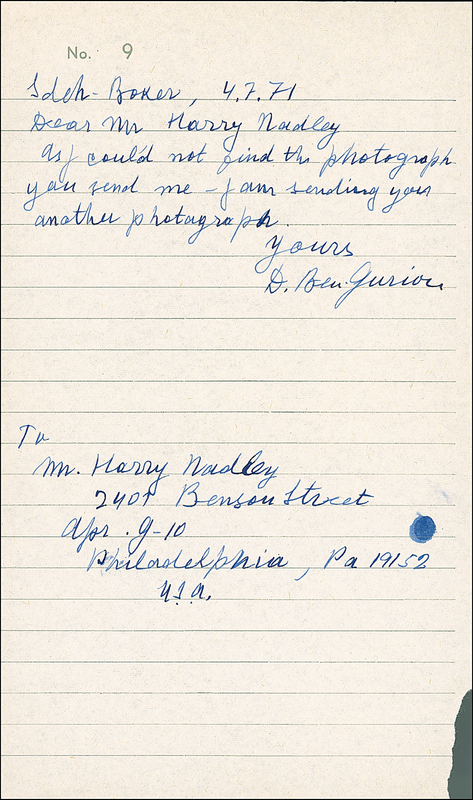 No. 9
Sdeh-Boker, 4.7.71
Dear Mr Harry Nadley
As I could not find the photograph
you send me - I am sending you
another photagraph.
Yours
D. Ben-Gurion
To
Mr. Harry Nadley
2401 Benson Street
Apr. 9-10
Philadelphia, Pa 19152
U.S.A.